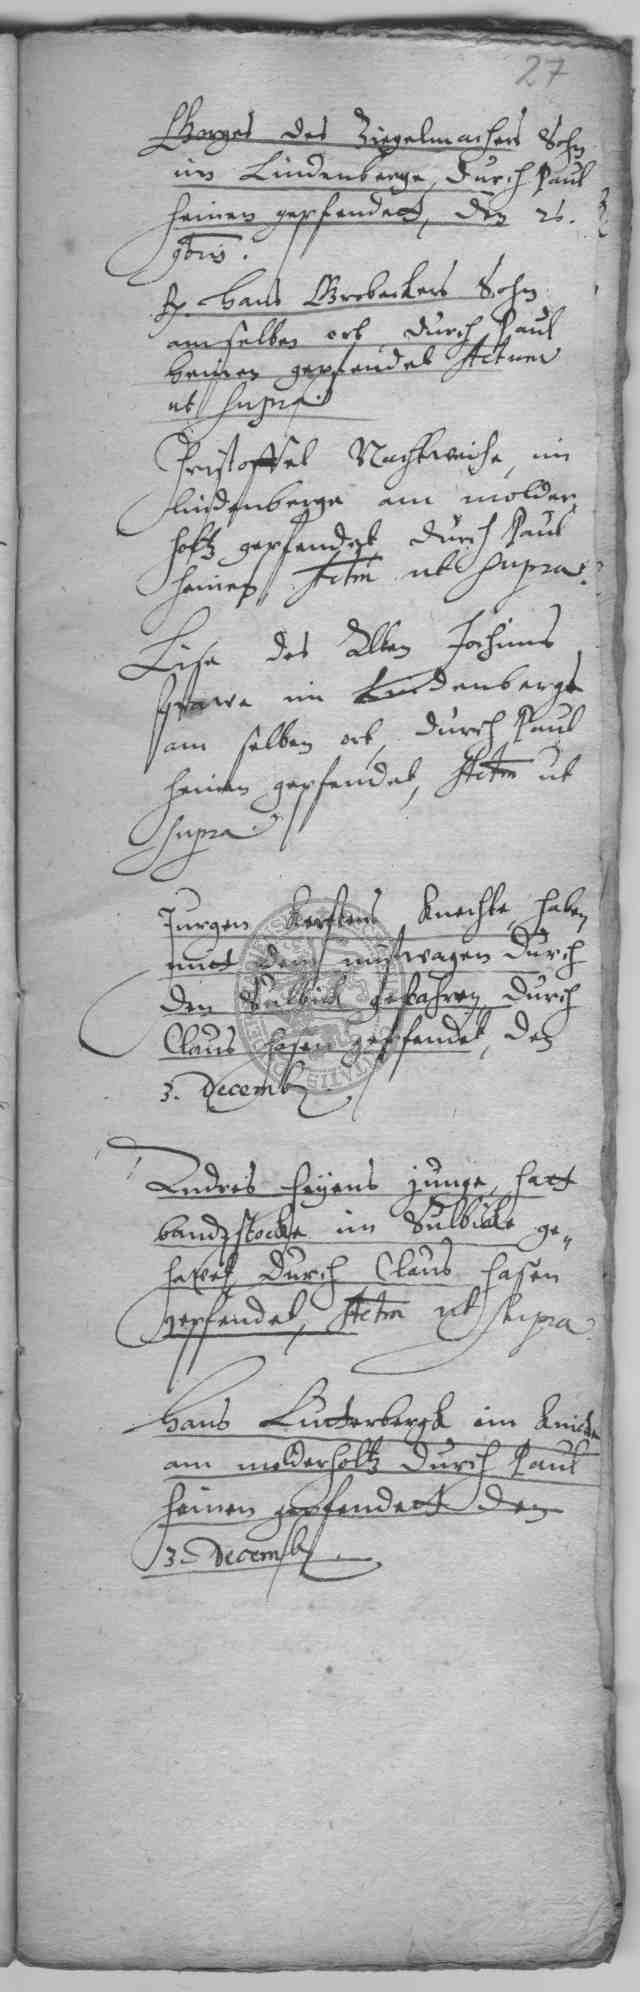 27
Gorges des Ziegelmachers Sohn
im Lindenberge, durch Paul
heinen gepfendett, den 26.
9bris.
Hans Grobeckers Sohn
am selben ort durch Paul
heinen gepfendet Actum
ut supra.
Christoffel Nachtweihe, im
lindenberge am molder
holtz gepfendet durch Paul
heinen Actm ut supra.
Lise des Alten Jochims
frawe im Lindenberge
am selben ort, durch Paul
heinen gepfendet, Actm ut
supra.
Jurgen Kerstens Knechte, haben
mitt dem mistwagen durch
den Sulbick gefahren, durch
Claus hasen gepfendet, den
3. Decemb.
Andres heyens junge, hatt
bandtstocke im Sulbicke ge„
hawet, durch Claus hasen
gepfendet, Actm ut supra.
Hans Lutterbergk im Knicke
am molderholtz durch Paul
heinen gepfendett den
3. Decemb.